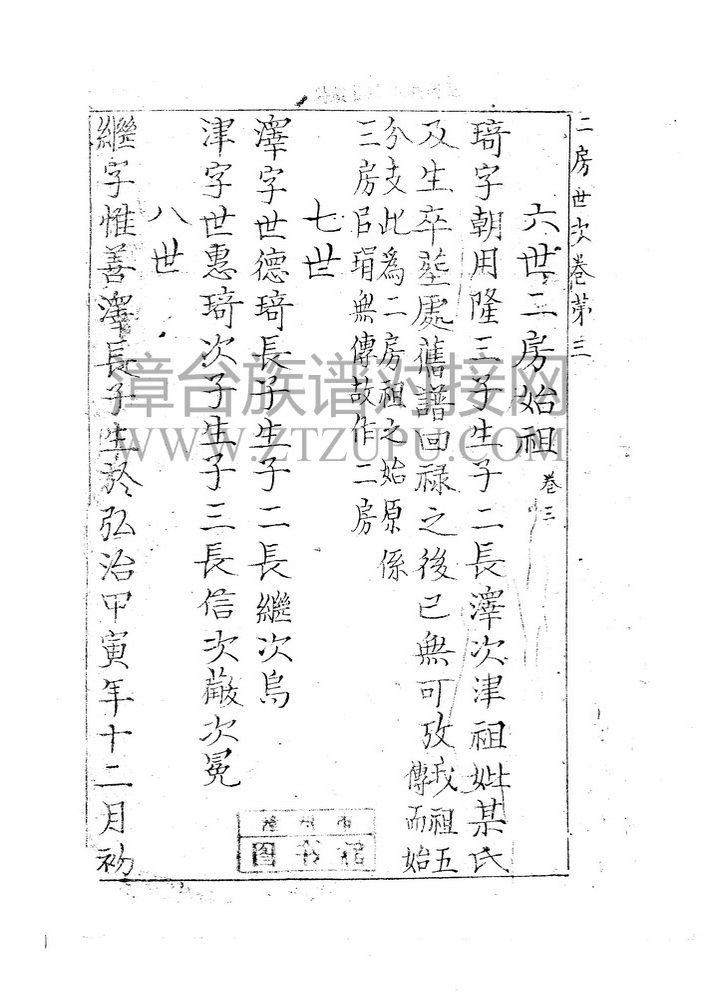 二房世次卷第三
六世二房始祖 卷三
琦字朝用隆三子生子二長澤次津祖妣某氏
及生卒塟處舊譜回禄之後已無可攷我祖五
傳而始
分支此為二房祖之始原係
三房因琄無傳故作二房
七世
澤字世德琦長子生子二長繼次鳥
津字世惠琦次子生子三長信次嚴次冕
八世
繼字惟善澤長子生於弘治甲寅年十二月初
漳州市
图书馆
漳台族谱对接网
WWW.ZTZUPU.COM